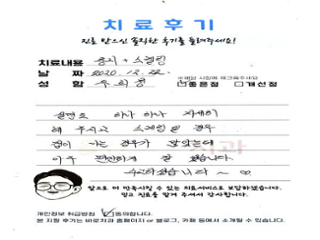 치료후기
진료 받으신 솔직한 후기를 들려주세요!
치료내용 충치 + 스켈링
날 짜 2020. 12. 22.
성 함 우희정
☑좋은점 □개선점
설명도 하나 하나 자세히
해 주시고 스케일링 경우
겁이 나는 경우가 많았는데
아주 편안하게 잘 했습니다.
수고하셨습니다 ~ ∞
앞으로 더 만족시킬 수 있는 치료서비스로 보답하겠습니다.
믿고 진료를 맡겨 주셔서 감사합니다.
개인정보 취급방침 ☑동의합니다.
본 치료 후기는 바로치과 홈페이지 or 블로그, 카페 등에서 소개될 수 있습니다.